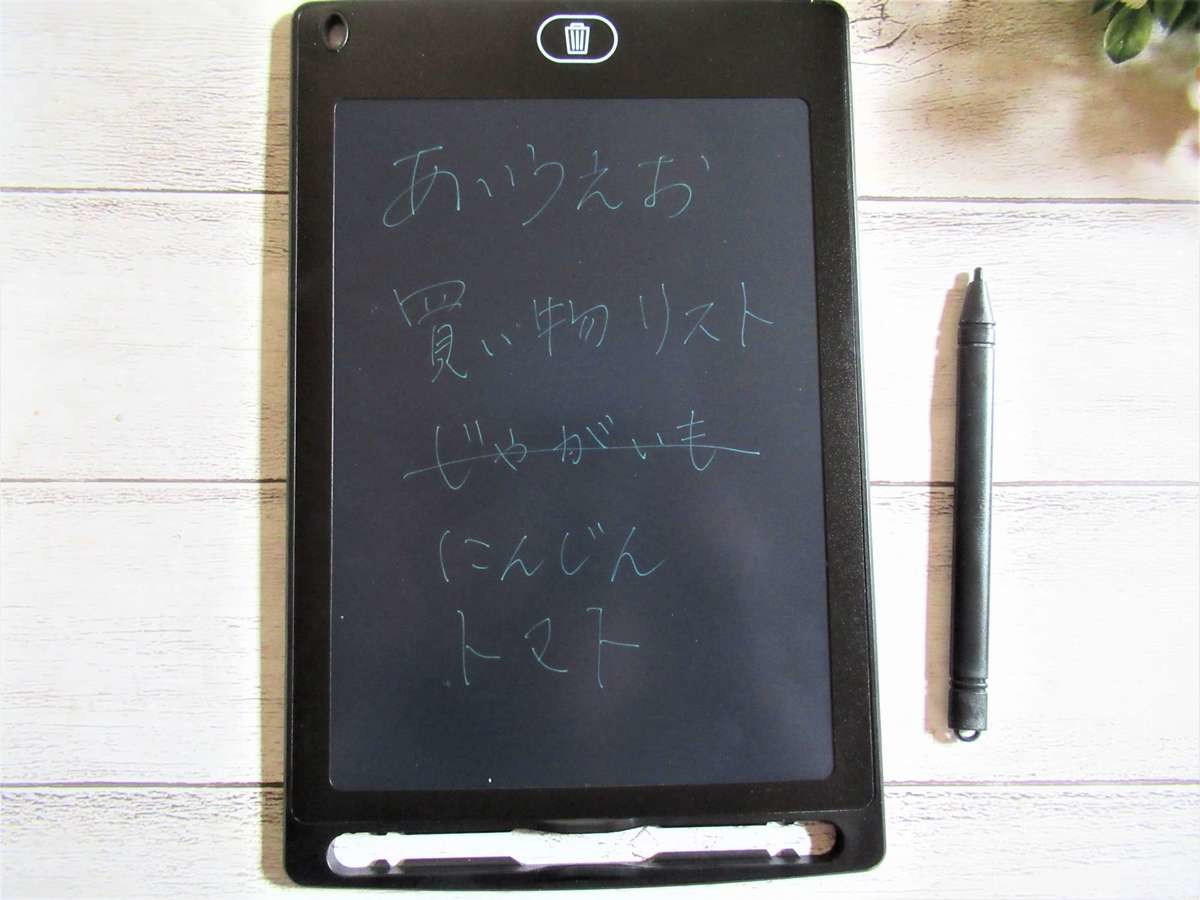 あいうえお
買い物リスト
じゃがいも
にんじん
トマト